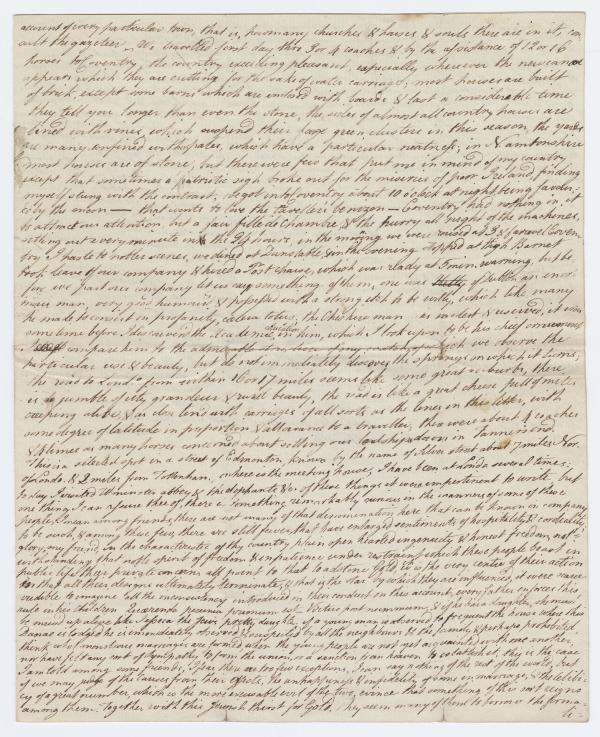 account of every particular town, that is, how many churches & houses & souls there are in it, con
sult the gazeteer. We travelled first day thro' for 4 coaches & by the assistance of 12 or 16
horses to Coventry, the country excelling pleasant, especially wherever the new canal
appears which they are cutting for the sake of water carriage, most houses are built
of brick, except some barns which are inclosed with boards & last a considerable time
they tell you longer than even the stone, the sides of almost all country houses are
lined with vines, which suspend their large green clusters in this season, the yards
are many, which have a particular neatness; in Namtonshire
most houses are of stone, but there were few that put me in mind of my country
except that sometimes a patriotic sigh broke out for the miseries of poor Ireland, finding
myself stung with the contrast; we got into Coventry about 10 o'clock at night being favour-
ed by the moon — that wants to love the traveller's benizon — Coventry had nothing in it
to attract our attention, but a fair fille de Chambre, & the hurry all night of the machines,
setting out every minute in the 24 hours, in the morng. we were roused at 3 & farewel Coven-
try I haste to nobler scenes, we dined at Dunstable, & in the Evening stopped at high Barnet
took leave of our company & hired a Post chaise, which was ready at 5 min. warning, but be
fore we part our company let us say something of them, one was of Dublin an eno
man, very good humour'd & possessed with a strong itch to be witty, which like many
he made to consist in profanity, the Cheshire man as modest & reserved, it was
sometime before I discovered the Academician in him, which I took upon to be his chief
I compare him to the we observe the
particular use & beauty, but do not immediately discover the springs on which it turns,
the road to London from within 16 or 17 miles seems like some great suburbs, there
is a jumble of city grandeur & rural beauty, the road is like a great cheese full of mites
creeping alive, & as close lin'd with carriages of all sorts as the lines in this letter, with
some degree of latitude in proportion & allowance to a traveller, there were about 4 coaches
& 4 times as many horses concerned about setting our in
This in a retired spot in a street of Edmonton known by the name of Silver street about 7 miles Nor.
of London & 2 miles from Tottenham, where is the meeting house, I have been at London several times;
to day I visited Westminster abbey & the & of these things it were impertinent to write, but
one thing I can assure thee of, there is something remarkably curious in the manners of some of these
people, I mean among friends, there are not many of that denomination here that can be known in company
to be such, & among these few, there are still fewer that have enlarged sentiments of hospitality & cordiality,
glory, my friend, in the characteristic of thy country plain open hearted ingenuity & honest freedom, not-
withstanding that noble spirit of freedom & impatience under restraint which these people boast in
public life, their private concerns all point to that loadstone Gold, it is the very center of their action
in that all their designs ultimately terminate, & that is the star by which they are influenced, it were scarce
credible to imagine all the inconsistency introduced in their conduct on this account, every father enforces this
rule in his children Quaerenda pecunia primum est Virtus post nummum, & if he has a daughter, she must
be mewed up alive like a the fair pretty daughter, if a young man is observed to frequent the house where this
Danae is lodged he is immediately observed & suspected by all the neighbours & the family, & perhaps prohibited.
think what monstrous marriages are formed when the young people are not yet acquainted with one another,
nor have felt any sort of sympathy to form the union, or affection from heaven to establish it, this is the case
I am told among some friends, I fear there are too few exceptions, I can say nothing of the rest of the world, but
if we may judge of the causes from their effects, the unhappiness & infidelity of some in marriage, & the celiba
cy of a great number, which is the more excusable evil of the two, evince that something of this sort reigns
among them. Together with this Jewish thirst for Gold, they seem many of them to borrow the forma-
li-